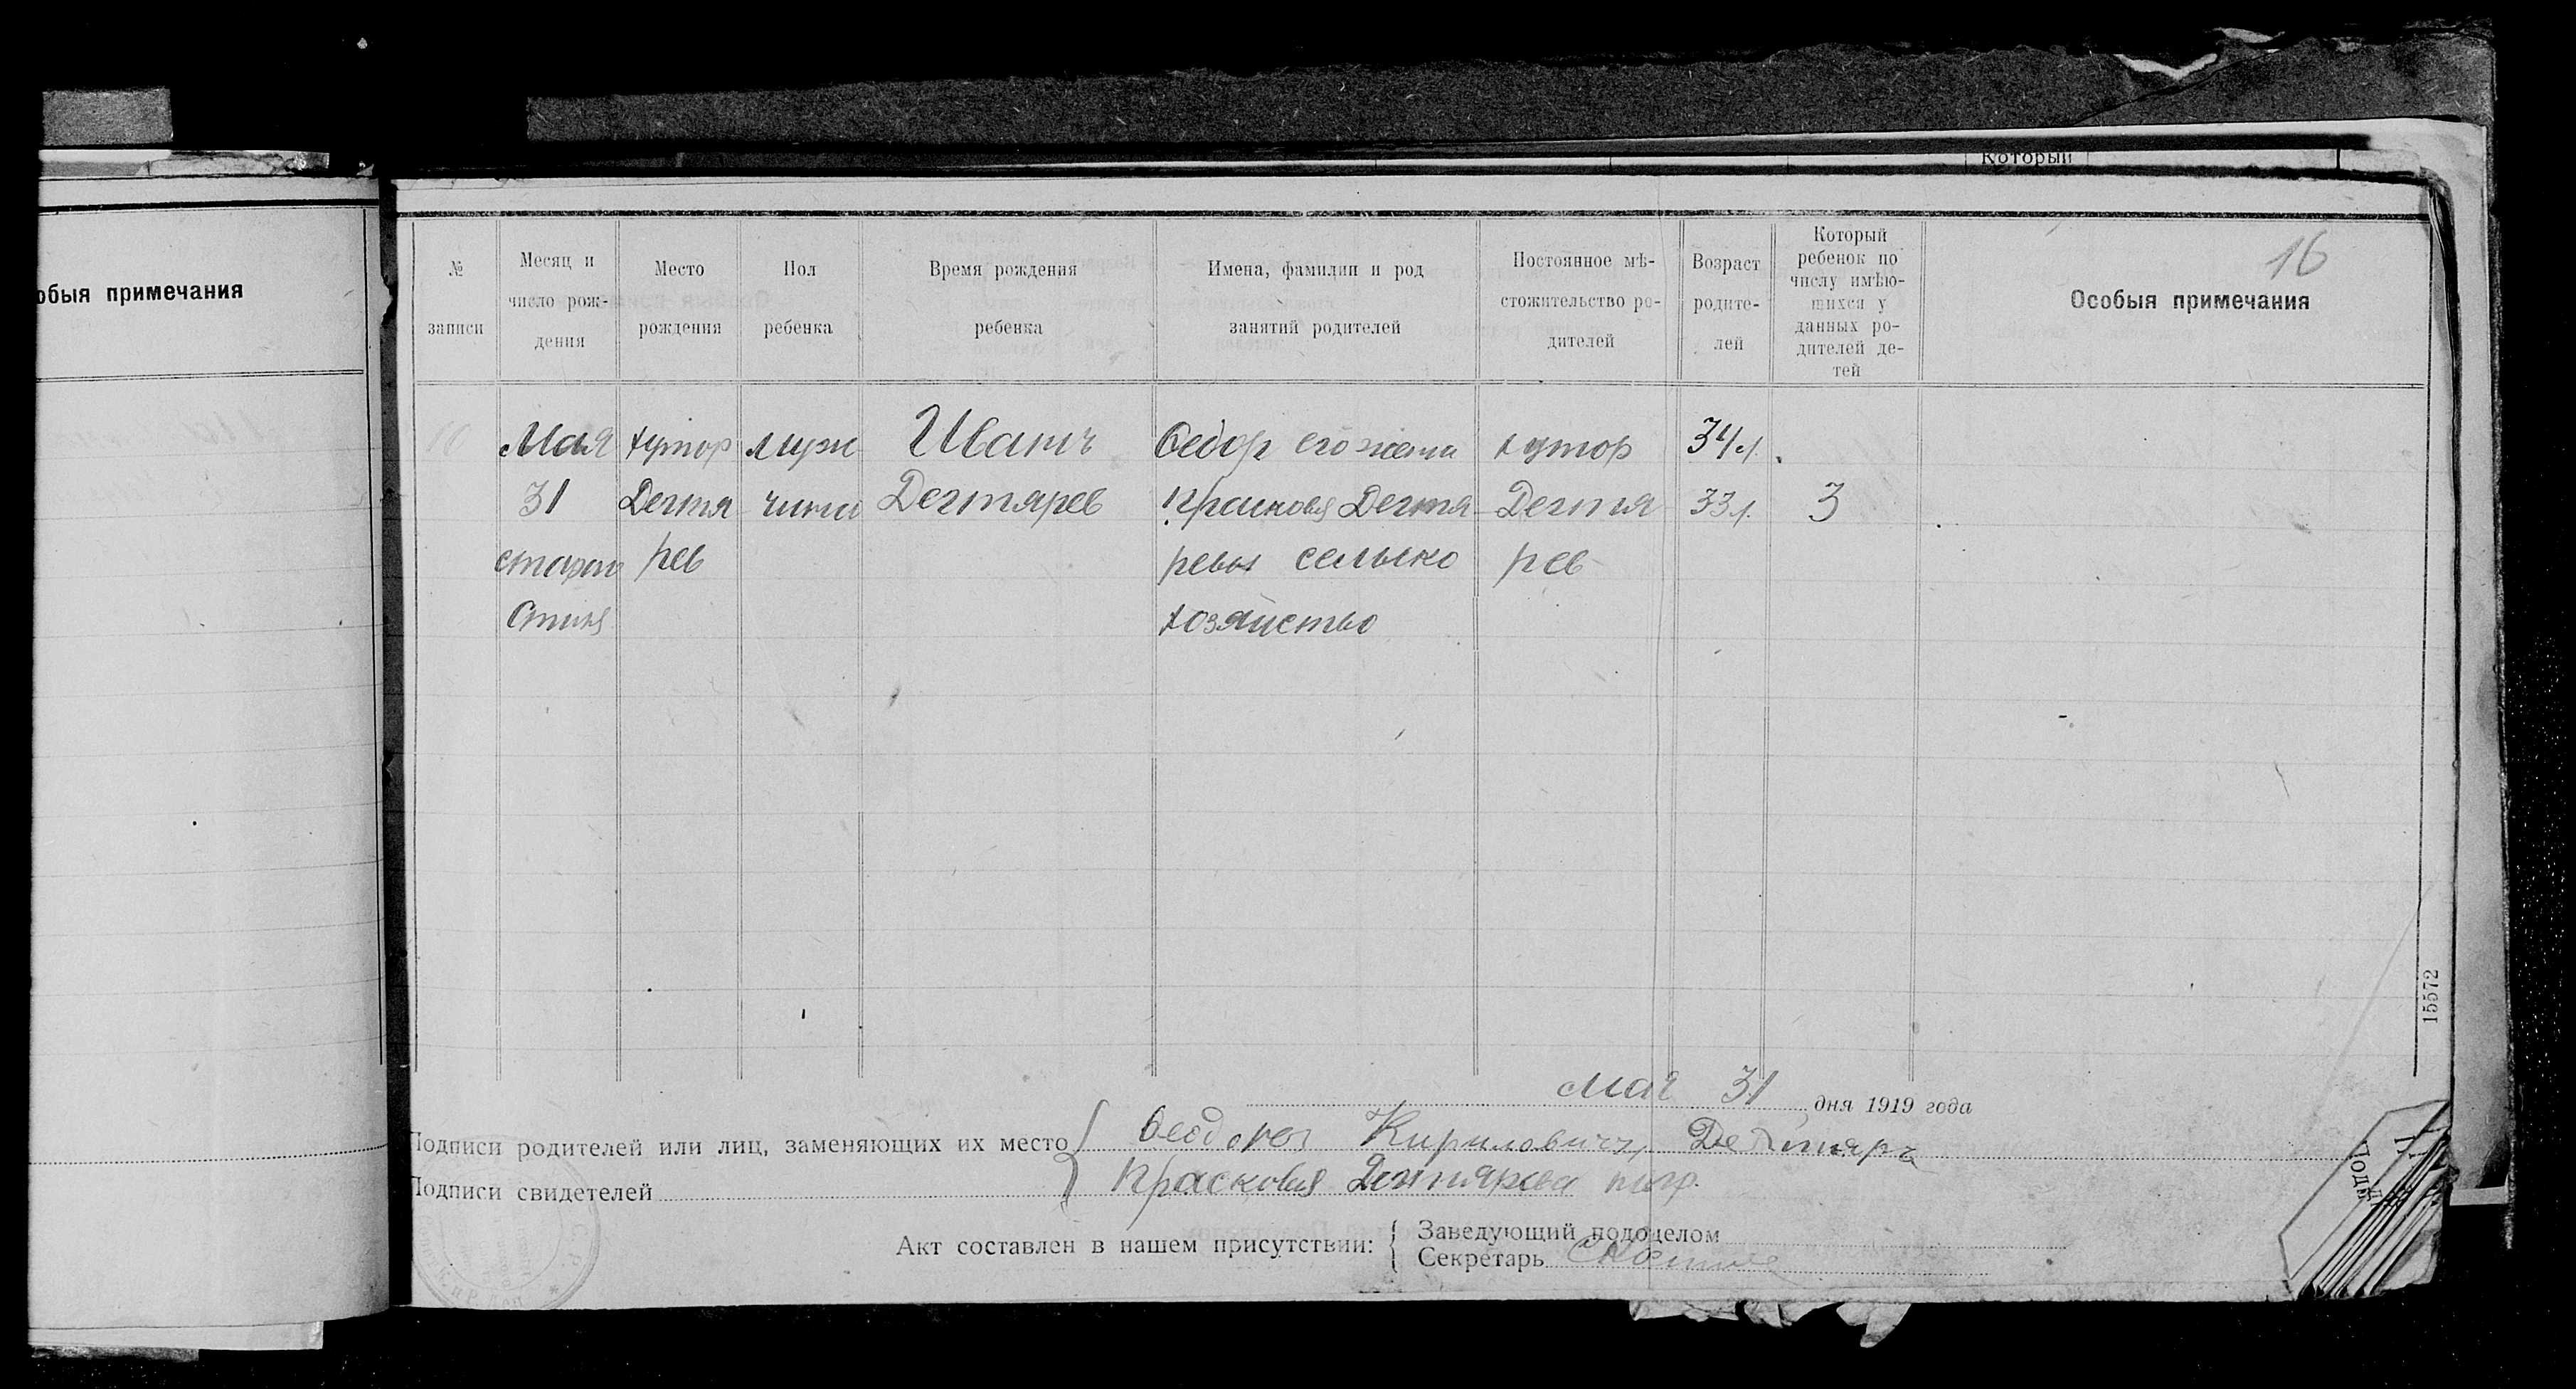 Который
обыя примечания
16
№ записи
Месяц и число рож-
дения
Место рождения
Пол ребенка
Время рождения ребенка
Имена, фамилии и род занятий родителей
Постоянное мѣ-
стожительство ро-
дителей
Возраст родите-
лей
Который
ребенок по
числу имѣю-
щихся у
данных ро-
дителей де-
тей
Особыя примечания
Мая хутор мущ Иванъ Федор его жена хутор 34 л.
31 Дегтя чина Дегтярев Прасковья Дегтя Дегтя 33 л. 3
старог рев ревы сельско рев
Стиля хозяйство
15572
Мая 31 дня 1919 года
Подписи родителей или лиц, заменяющих их место Кирилович
Подписи свидетелей Прасковья Дегтярева
Акт составлен в нашем присутствии:
Заведующий пододелом
Секретарь